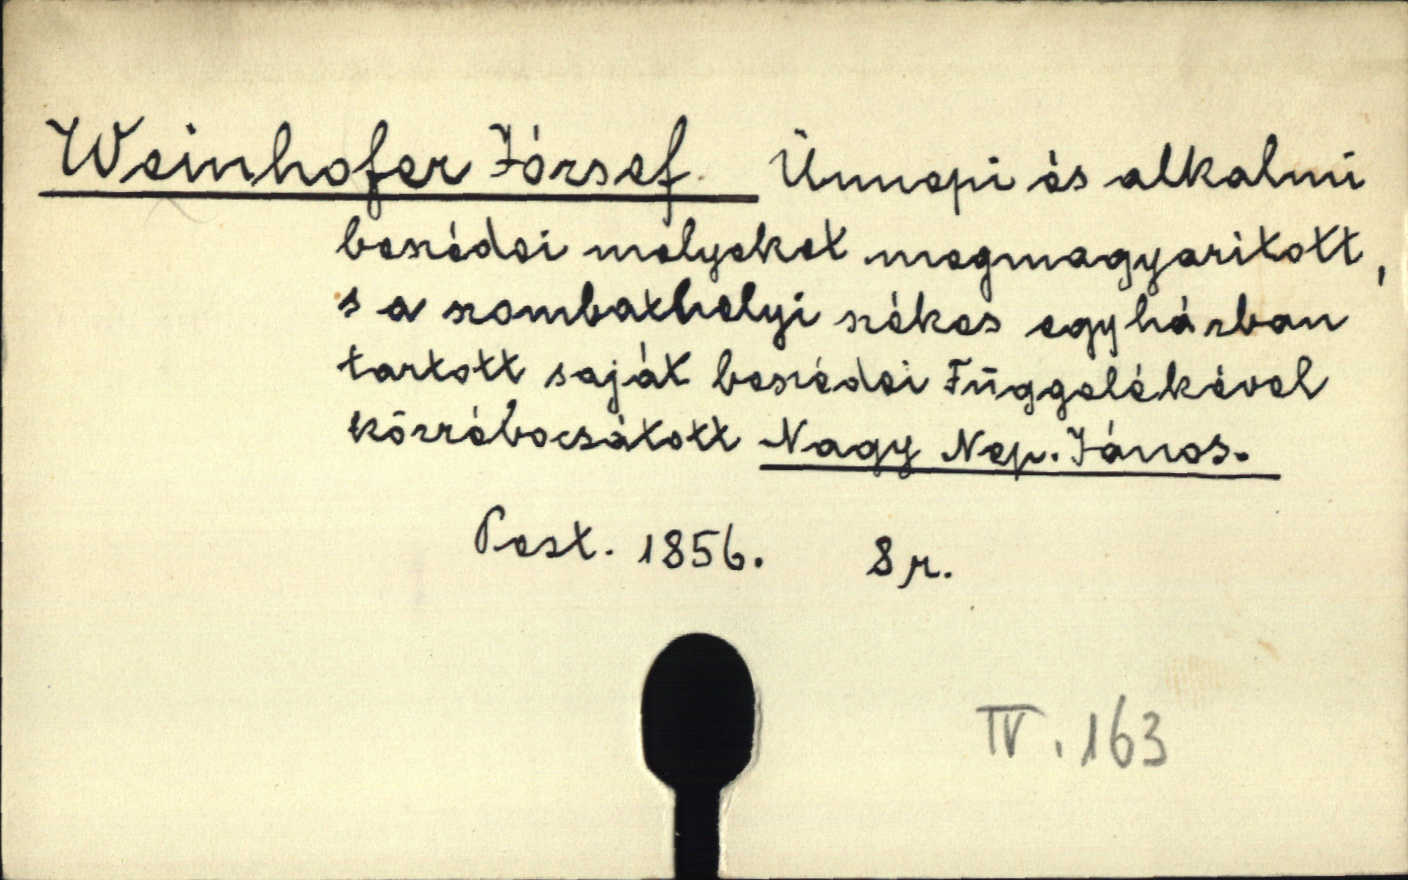 Weinhofer József. Ünnepi és alkalmi
beszédei melyeket megmagyaritott,
s a szombathelyi székes egyházban
tartott saját beszédei Függelékével
közrébocsátott Nagy Nep. János.
Pest. 1856. 8 r.
IV. 163